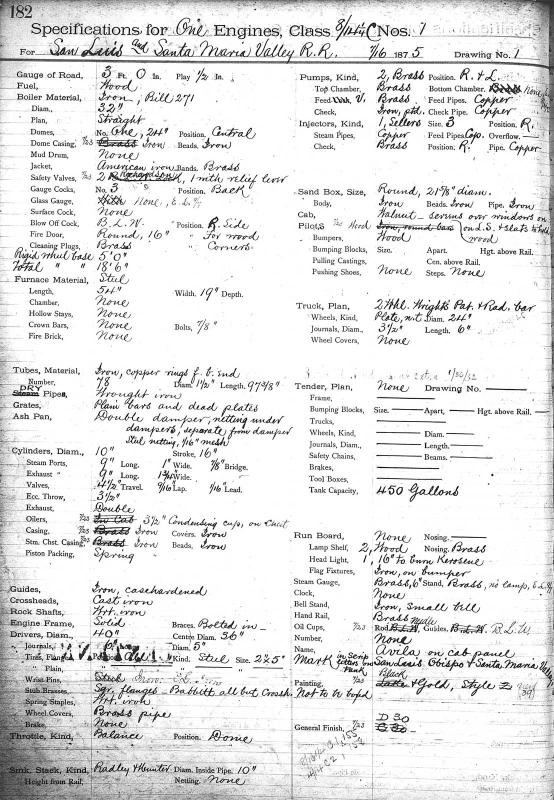 182
Specifications for One Engines, Class 8/12¼ C Nos. 1
For San Luis and Santa Maria Valley R.R. 7/16 1875 Drawing No. 1
Gauge of Road, 3 Ft. 0 In. Play ½ In.
Fuel, Wood
Boiler Material, Iron, Bill 271
Diam., 32"
Plan, Straight
Domes, No. One, 24" Position. Central
Dome Casing, 7/23 Brass Iron Beads. Iron
Mud Drum, None
Jacket, American iron Bands. Brass
Safety Valves, 7/23 2 Richardson 1 with relief lever
Gauge Cocks, No. 3 Position. Back
Glass Gauge, With None, E.L.
Surface Cock, None
Blow Off Cock, B.L.W. Position. R. Side
Fire Door, Round, 16" For wood
Cleaning Plugs, Brass Corners
Rigid wheel base 5' 0"
Total " " 18' 6"
Furnace Material, Steel
Length, 54" Width. 19" Depth.
Chamber, None
Hollow Stays, None
Crown Bars, None Bolts, 7/8"
Fire Brick, None
Tubes, Material, Iron, copper rings f. b. end
Number, 78 Diam. 1½" Length. 97 3/8"
DRY
Steam Pipes, Wrought iron
Grates, Plain bars and dead plates
Ash Pan, Double damper, netting under
dampers, separate from damper
Steel netting, 3/16" mesh
Cylinders, Diam., 10" Stroke, 16"
Steam Ports, 9" Long. 1" Wide. 7/8" Bridge.
Exhaust " 9" Long. 1¾" Wide.
Valves, 4½" Travel. 9/16" Lap. 1/16" Lead.
Ecc. Throw, 3½"
Exhaust, Double
Oilers, 7/23 In Cab 3½" Condensing cup, on Chest
Casing, 7/23 Brass Iron Covers. Iron
Stm. Chst. Casing, 7/23 Brass Iron Beads, Iron
Piston Packing, Spring
Guides, Iron, casehardened
Crossheads, Cast iron
Rock Shafts, Wrt. iron
Engine Frame, Solid Braces. Bolted in
Drivers, Diam., 40" Centre Diam. 36"
Journals, 6" Diam. 5"
Tires, Flanged, Kind. Steel Size. 2 x 5"
" Plain,
Wrist Pins, Steel Iron
Stub Brasses, Sqr. flanges - Babbitt all but Crossh.
Spring Staples, Wrt. iron
Wheel Covers, Brass pipe
Brake, None
Throttle, Kind, Balance Position. Dome
Smk. Stack, Kind, Radley & Hunter Diam. Inside Pipe. 10"
Height from Rail, Netting. None
Pumps, Kind, 2, Brass Position. R. & L.
Top Chamber, Brass Bottom Chamber. Brass None
Feed V. Brass Feed Pipes. Copper
Check, Iron, ptd. Check Pipe. Copper
Injectors, Kind, 1, Sellers Size. 3 Position. R.
Steam Pipes, Copper Feed Pipes Cop. Overflow.
Check, Brass Position. R. Pipe. Copper
Sand Box, Size, Round, 21 5/8" diam.
Body, Iron Beads. Iron Pipe. Iron
Cab, Walnut - screens over windows on
Pilots, Wood Iron, round bars on L.S. & slats to hold
Bumpers, Wood wood
Bumping Blocks, Size. Apart, Hgt. above Rail.
Pulling Castings, Cen. above Rail.
Pushing Shoes, None Steps. None
Truck, Plan, 2 Whl. Wright's Pat. & Rad. bar
Wheels, Kind, Plate, Diam. 24"
Journals, Diam., 3½" Length. 6"
Wheel Covers, None
1/30/32
Tender, Plan, None Drawing No.
Frame,
Bumping Blocks, Size. Apart, Hgt. above Rail.
Trucks,
Wheels, Kind, Diam.
Journals, Diam., Length.
Safety Chains, Beams.
Brakes,
Tool Boxes,
Tank Capacity, 450 Gallons
Run Board, None Nosing.
Lamp Shelf, 2, Wood Nosing. Brass
Head Light, 1, 16" to burn Kerosene
Flag Fixtures, Iron, on bumper
Steam Gauge, Brass, 6" Stand, Brass, no lamp, E.L.
Clock, None
Bell Stand, Iron, small bell
Hand Rail, Brass
Oil Cups, 7/23 Rod B.L.W. needle Guides. B.L.W. B.L.W.
Number, None
Name, Avila on cab panel
Mark in Scrip letters on tank San Luis Obispo & Santa Maria Valley
Painting, 7/23 Lake Black & Gold, Style
Not to be coped
General Finish, 7/23 D 30